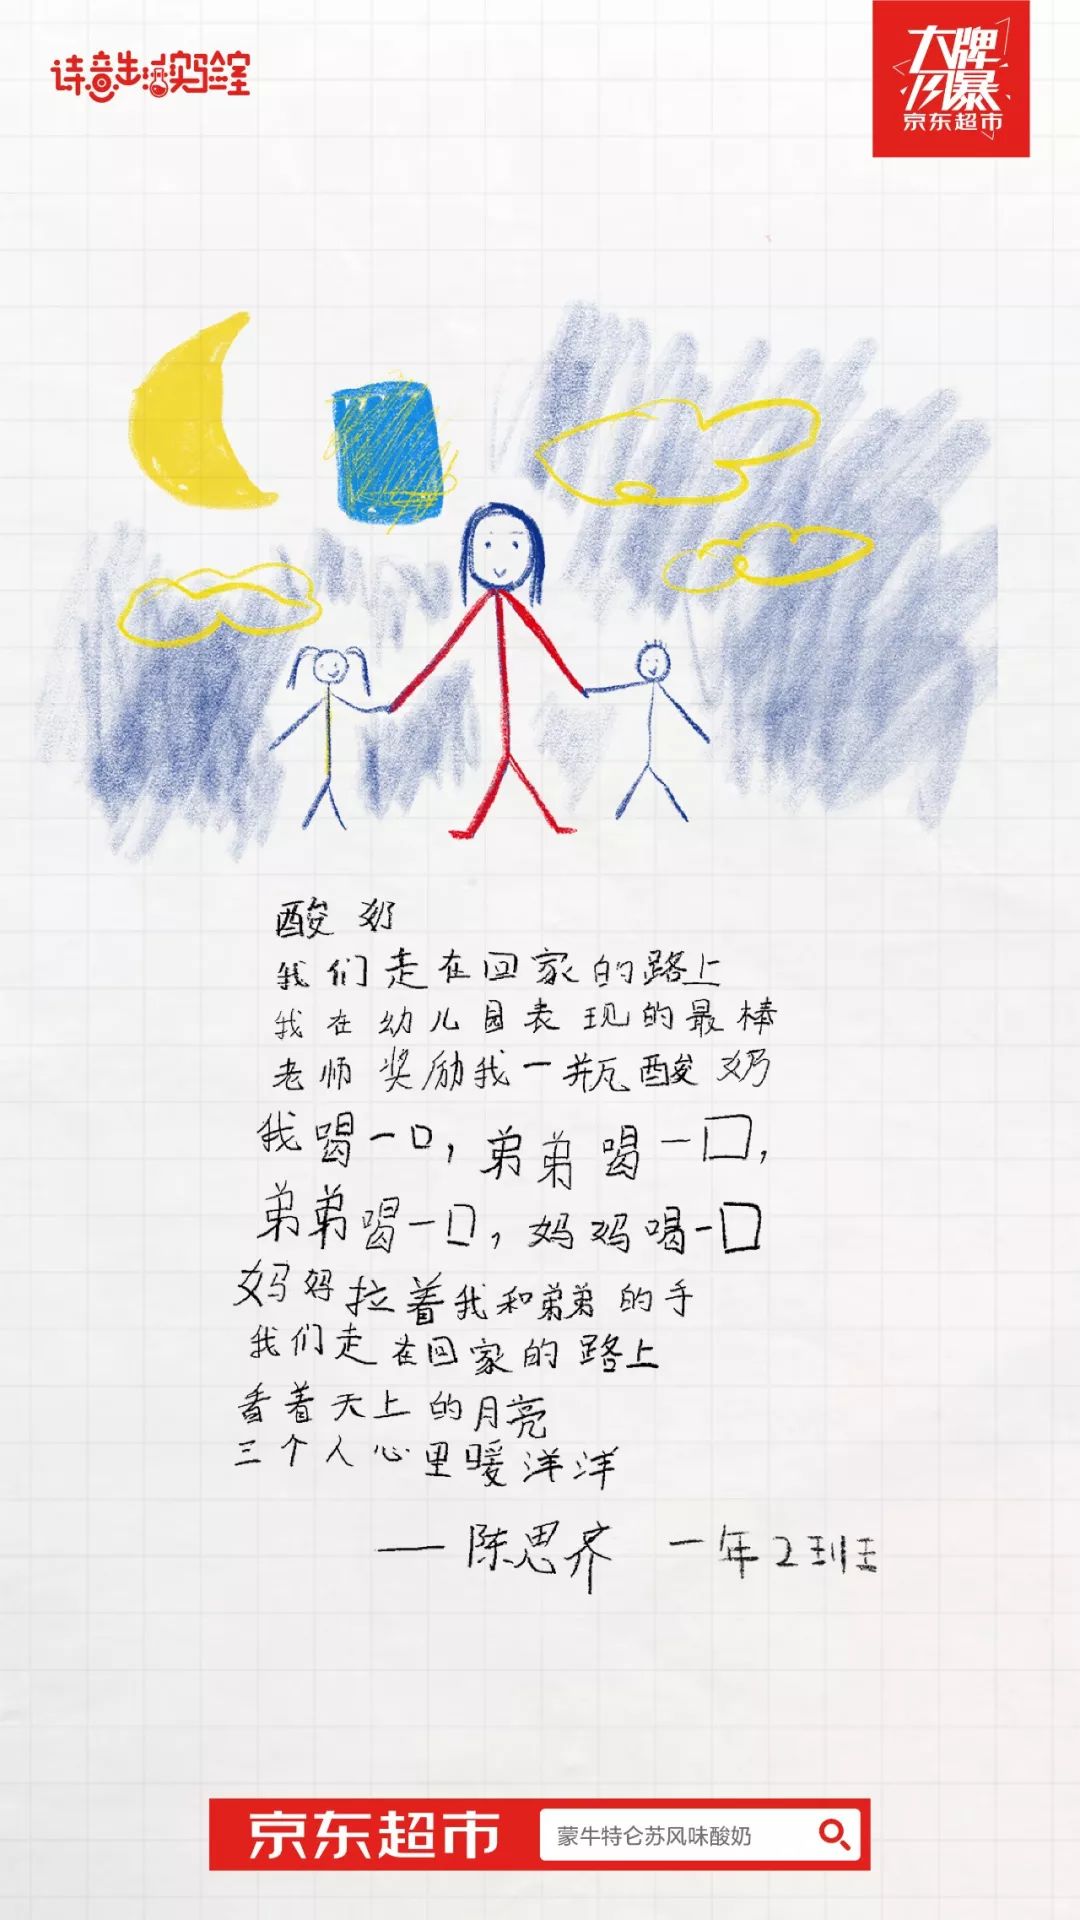 诗意生活实验室
大牌
风暴
京东超市
酸奶
我们走在回家的路上
我在幼儿园表现的最棒
老师奖励我一瓶酸奶
我喝一口，弟弟喝一口，
弟弟喝一口，妈妈喝一口
妈妈拉着我和弟弟的手
我们走在回家的路上
看着天上的月亮
三个人心里暖洋洋
——陈思齐 一年2班
京东超市 蒙牛特仑苏风味酸奶